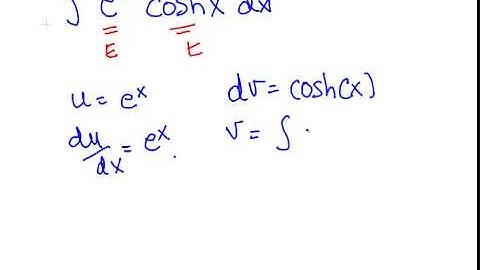 ∫ e cosh x dx
E t
u = e^x dv = cosh(x)
du/dx = e^x. v = ∫